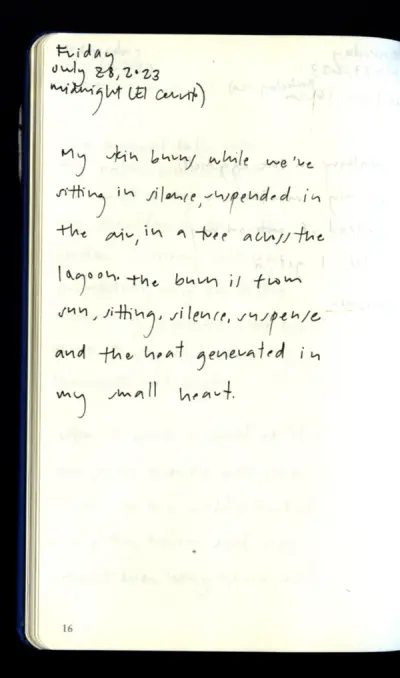 Friday
July 28, 2023
midnight (El Cerrito)
My skin burns, while we've
sitting in silence, suspended in
the air, in a tree across the
lagoon. The burn is from
sun, sitting, silence, suspense
and the heat generated in
my small heart.
16